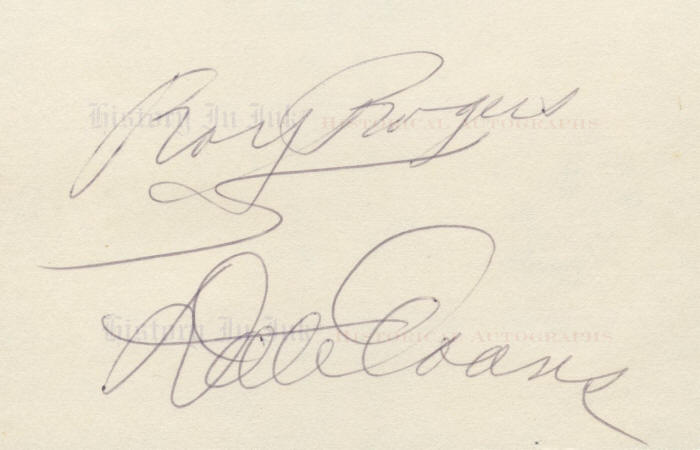 Roy Rogers
History In Ink HISTORICAL AUTOGRAPHS
Dale Evans
History In Ink HISTORICAL AUTOGRAPHS